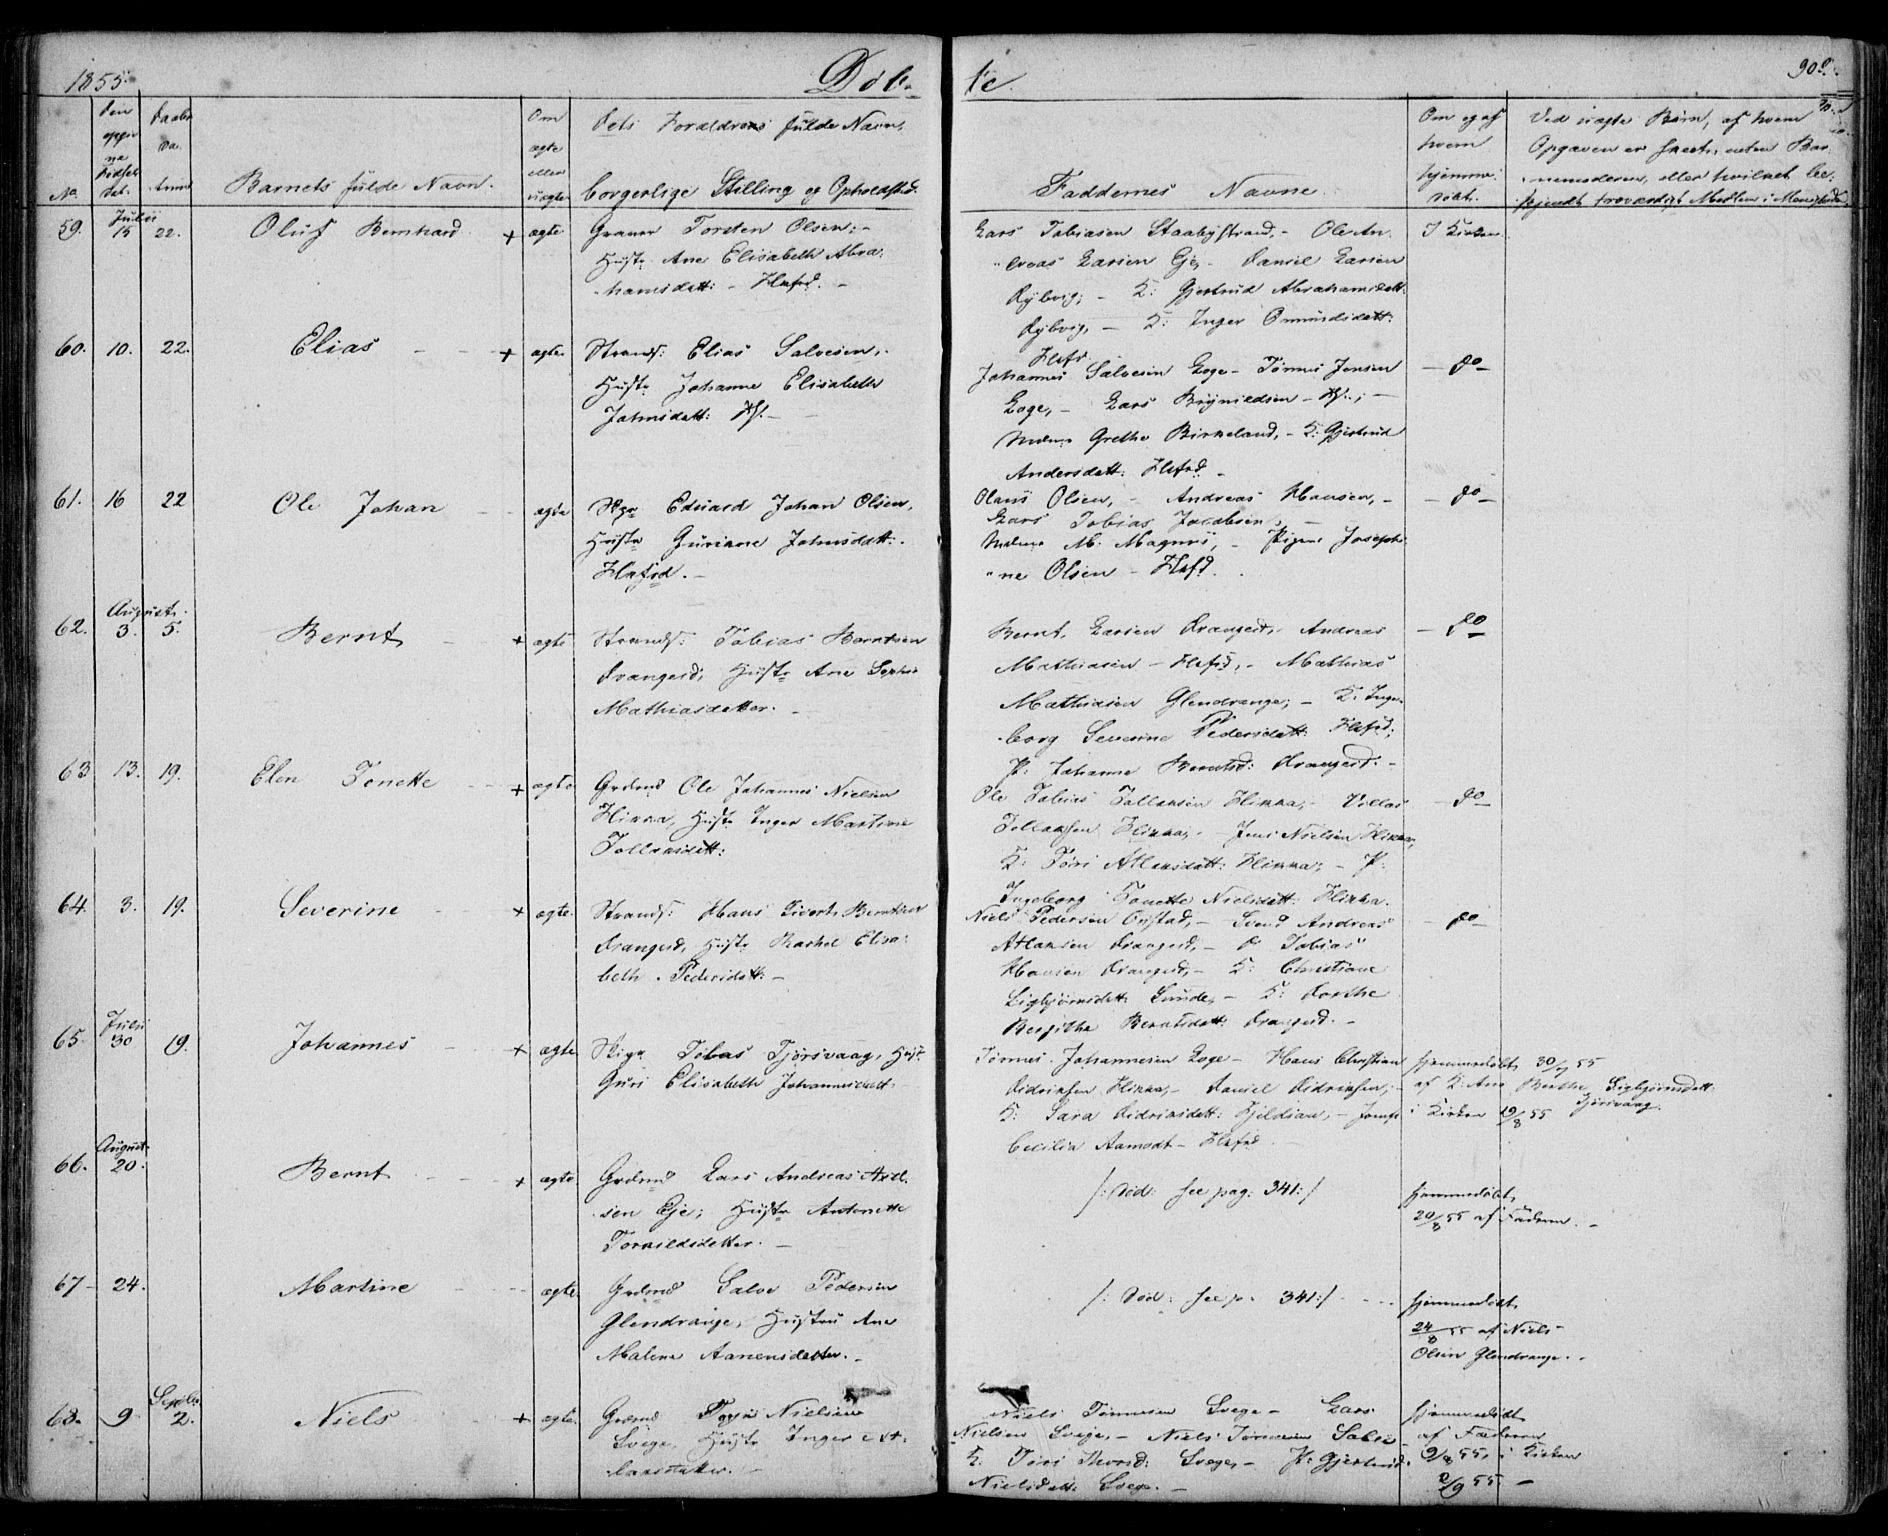 1855.
Døb-
te.
90.
No.
Den
opgiv
ne
Fødsels
dat.
Daabs
Da.
Barnets fulde Navn.
Om
ægte
eller
uægte
Dets Forældres fulde Navn,
borgerlige Stilling og Opholdsted.
Faddernes Navne.
Om og af
hvem
hjemme-
døbt.
Ved uægte Børn, af hvem
Opgaven er skeet, enten Bar-
nemoderen, eller hvilket be-
kjendt troværdigt Medlem i Menigheden
Julii
59. 15 22. Oluf Bernhard + ægte
Graver Torsten Olsen, -
Hust: Ane Elisabeth Abra-
hamsdatt: - Flefrd. -
Lars Tobiasen Staabystrand, - Ole An-
dreas Larsen Eje, - Daniel Larsen
Dybvig; - K: Gjertrud Abrahamsdatt:
Dybvig, - K: Inger Omundsdatt:
Flefrd.
I Kirken
60. 10. 22. Elias + ægte
Strands: Elias Salvesen,
Hust: Johanne Elisabeth
Johnsdatt: Ff. -
Johannes Salvesen Loge - Tønnes Jensen
Loge, - Lars Brynildsen - Ff.; -
Madme Grethe Birkeland, - K: Gjertrud
Andersdatt: Flefrd -
- do -
61. 16 22 Ole Johan ægte
Skpr Eduard Johan Olsen,
Hustr Guriane Johnsdatt:
Flefrd. -
Olaus Olsen, - Andreas Hansen, -
Lars Tobias Jacobsen, -
Madme M. Magnus, - Pigen Josephi-
ne Olsen - Flefd.
- do -
August.
62. 3. 5. Bernt + ægte
Strands: Tobias Berntsen
Drangeid; Hustr Ane Sophie
Mathiasdatter. -
Bernt Larsen Drangeid, Andreas
Mathiasen - Flefrd, - Mathias
Mathiasen Glendrange; - K: Inge-
borg Severine Pedersdatt: Flefrd;
P: Johanne Berntsd: Drangeid. -
- do -
63 13. 19. Elen Tonette + ægte
Grdmd Ole Johannes Nielsen
Flikka, Hustr Inger Martine
Tollaksdatt:
Ole Tobias Tollaksen Flikka, - Villas
Tollaksen Flikka, - Jens Nielsen Flikka;
K: Tøri Atlaksdatt: Flikka; - P:
Ingeborg Tonette Nielsdatt: Flikka.
- do -
64. 3. 19. Severine + ægte.
Strands: Hans Sivert Berntsen
Drangeid, Hustr Rachel Elisa-
beth Pedersdatt: -
Niels Pedersen Opstad, - Svend Andreas
Atlaksen Drangeid, - Tobias
Hansen Drangeid, - K: Christiane
Sigbjørnsdatt: Sunde, - K: Dorthe
Bergithe Berntsdatt: Drangeid. -
- do -
Julii
65. 30 19. Johannes + ægte
Tobias Tjørsvaag, Hust:
Guri Elisabeth Johannesdatt:
Tønnes Johannesen Loge - Hans Christian
Didriksen Flikka, - Daniel Didriksen, -
K: Sara Didriksdatt: Fjeldsaa, - Jomfr
Cecilia Aamodt - Flefrd. -
hjemmedøbt 30/7 55
af K: Ane Berthe Sigbjørnsdatt:
Tjørsvaag.
i Kirken 19/8 55
August.
66. 20. Bernt + ægte
Grdmd Lars Andreas Axel-
sen Eje; Hustr Antonette
Torkildsdatter. -
/: Død: see pag: 341:/
hjemmedøbt
20/8 55 af Faderen. -
67 - 24. Martine ægte.
Grdmd Salve Pedersen
Glendrange, Hustru Ane
Malene Aanensdatter. -
/: Død: see p. 341:/
hjemmedøbt
24/8 55 af Niels
Olsen Glendrange.
Septbr
68. 9 2. Niels + ægte.
Grdmd Nielsen
Svege, Hustr Inger
Larsdatter. -
Niels Tønnesen Svege - Lars
Nielsen Svege, - Niels Tønnesen
K: Tøri Thorsd: Svege, - P: Gjertrud
Nielsdatt: Svege. -
hjemmedøbt
af Faderen
9/8 55, i Kirken
2/9 55. -